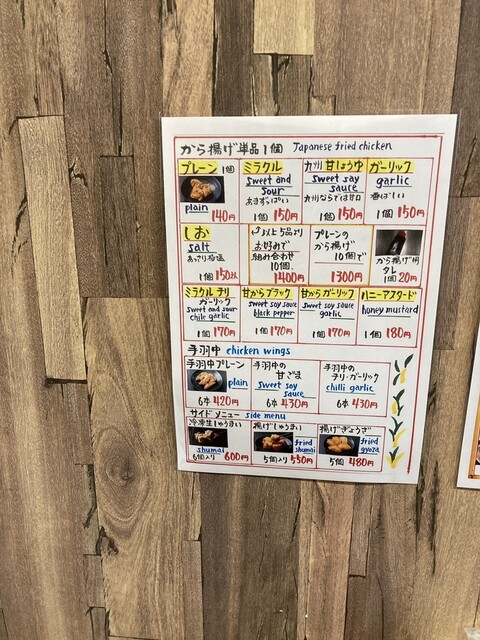 から揚げ単品1個 Japanese fried chicken
プレーン 1個
plain
140円
ミラクル
sweet and
sour
あまずっぱい
1個 150円
九州 甘しょうゆ
sweet soy
sauce
九州ならでは甘口
1個 150円
ガーリック
garlic
香ばしい
1個 150円
しお
salt
あっさり
1個 150円
以上5品より
お好みで
組み合わせ
10個
1400円
プレーンの
から揚げ
10個で
1300円
から揚げ用
タレ
1個 20円
ミラクル チリ
ガーリック
sweet and sour
chile garlic
1個 170円
甘からブラック
sweet soy sauce
black pepper
1個 170円
甘からガーリック
sweet soy sauce
garlic
1個 170円
ハニーマスタード
honey mustard
1個 180円
手羽中 chicken wings
手羽中プレーン
plain
6本 420円
手羽中の
甘ごま
sweet soy
sauce
6本 430円
手羽中の
チリ・ガーリック
chilli garlic
6本 430円
サイドメニュー side menu
冷凍生しゅうまい
shumai
6個入り 600円
揚げしゅうまい
fried
shumai
5個入り 550円
揚げぎょうざ
fried
gyoza
5個 480円